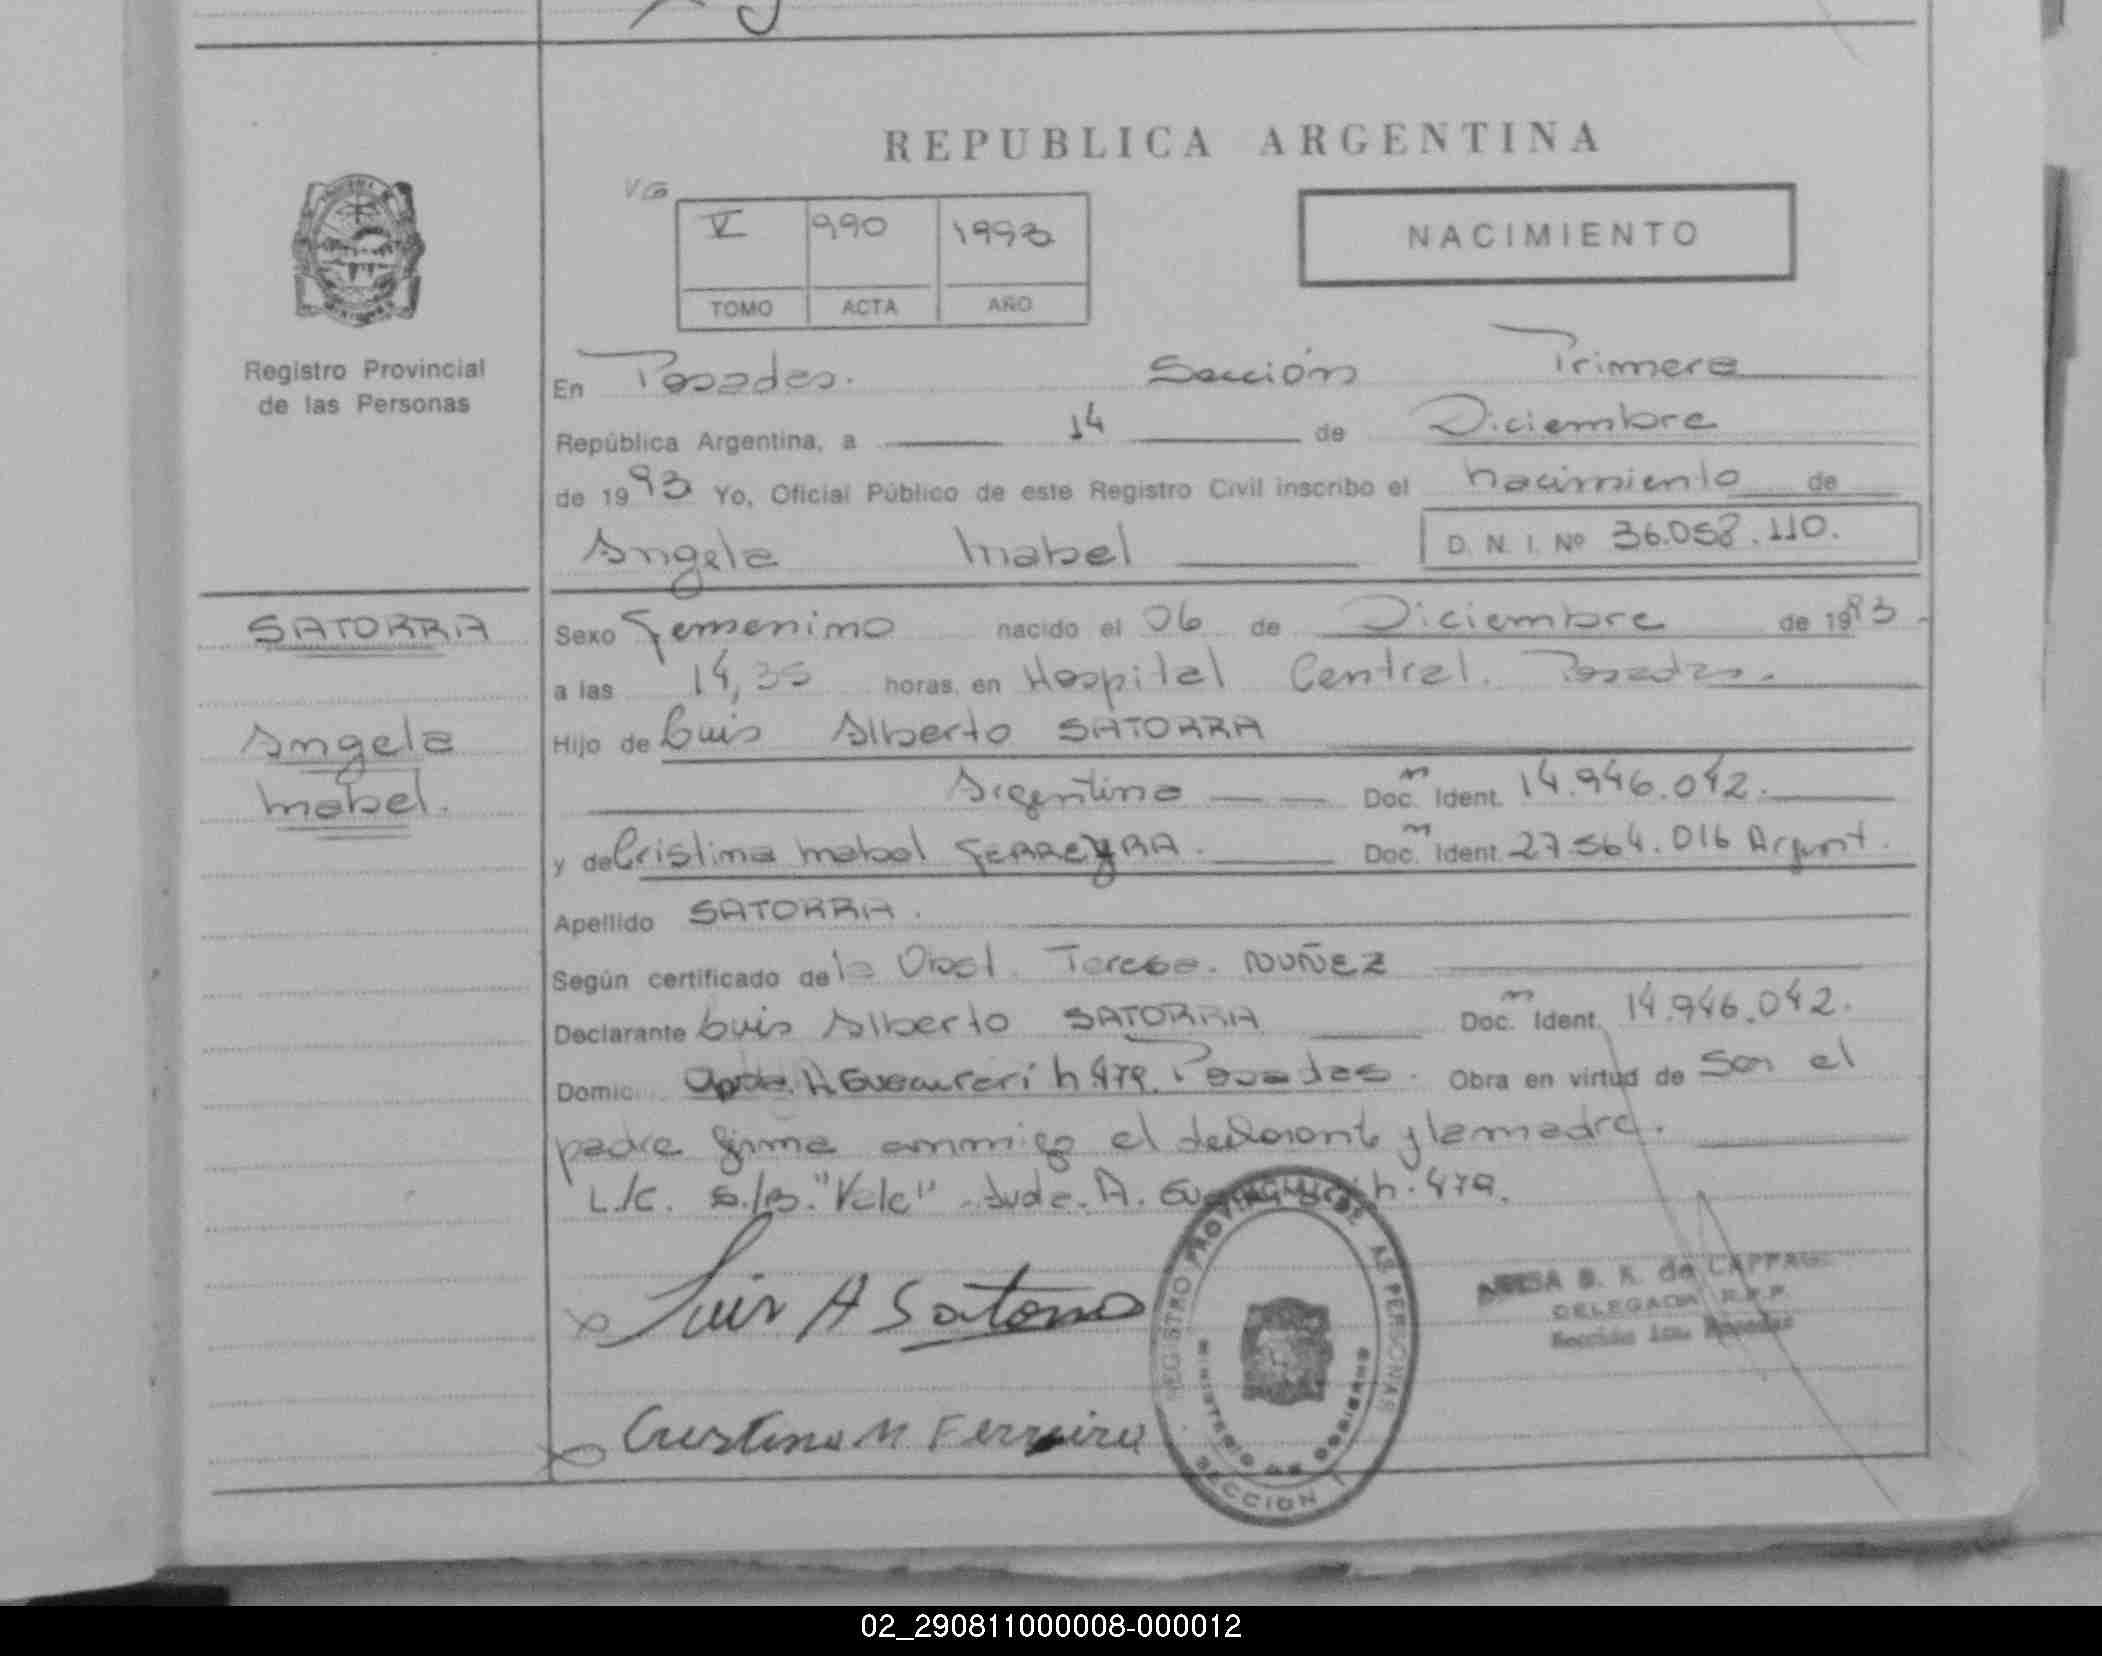 REPUBLICA ARGENTINA
VG
V 990 1993
TOMO ACTA AÑO
NACIMIENTO
Registro Provincial
de las Personas
En Posadas. Sección Primera
República Argentina, a 14 de Diciembre
de 1993 Yo, Oficial Público de este Registro Civil inscribo el nacimiento de
Angela Mabel D. N. I. Nº 36.058.110.
SATORRA
Angela
Mabel.
Sexo Femenino nacido el 06 de Diciembre de 1993
a las 14,35 horas, en Hospital Central. Posadas.
Hijo de Luis Alberto SATORRA
Argentino Doc. Ident. 14.946.042.
y de Cristina Mabel FERREYRA. Doc. Ident. 27.564.016 Argent.
Apellido SATORRA.
Según certificado de la Obst. Teresa. NUÑEZ
Declarante Luis Alberto SATORRA Doc. Ident. 14.946.042.
Domic. A Guacurarí h 479. Posadas. Obra en virtud de Ser el
padre firma conmigo el declarante y la madre.
L/C. S/B. "Vale" Avda. A. h. 479.
Luis A Satorra
Cristina M Ferreira
REGISTRO PROVINCIAL DE LAS PERSONAS
MINISTERIO DE GOBIERNO
SECCION 1
B. K. de
DELEGADA R.P.P.
Sección 1ra. Posadas
02_290811000008-000012